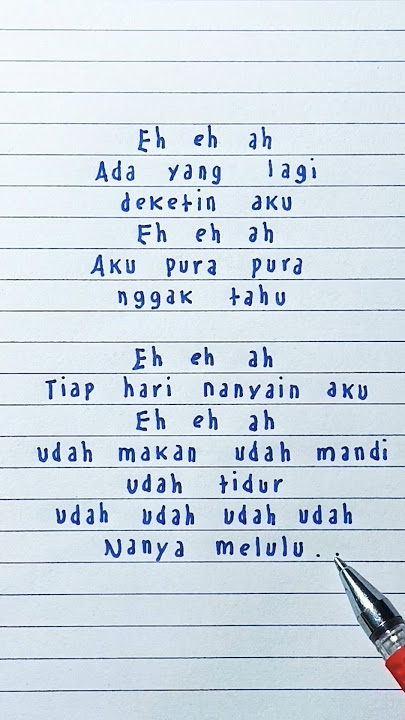 Eh eh ah
Ada yang lagi
deketin aku
Eh eh ah
Aku pura pura
nggak tahu
Eh eh ah
Tiap hari nanyain aku
Eh eh ah
udah makan udah mandi
udah tidur
udah udah udah udah
Nanya melulu . .